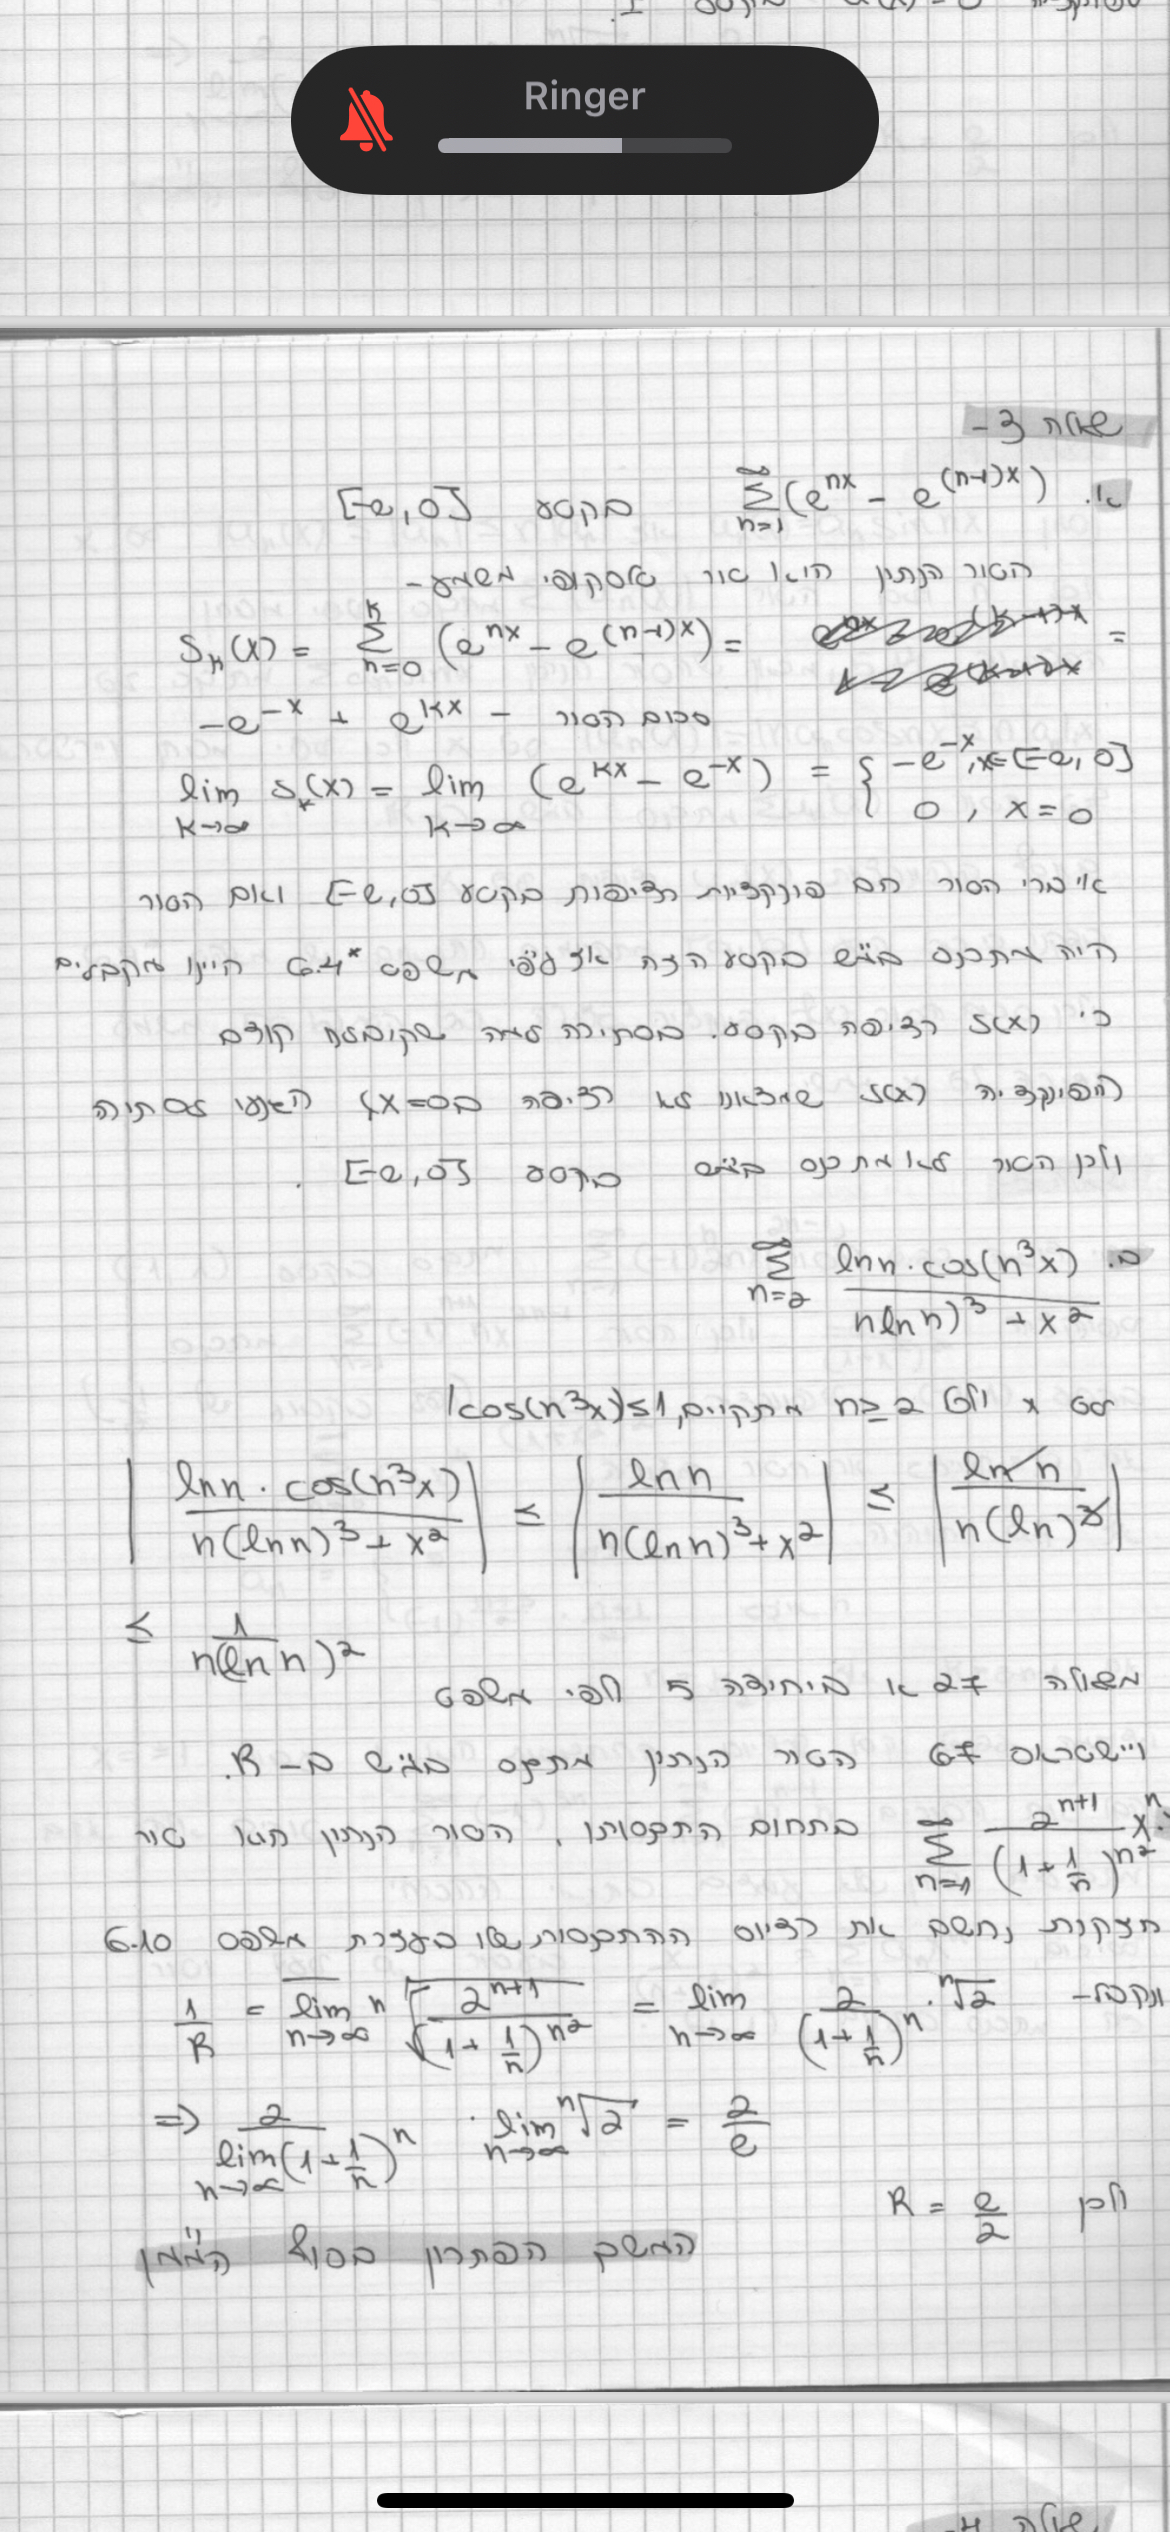 Ringer
שאלה 3-
א. \sum_{n=1}^{∞} (e^{nx} - e^{(n-1)x}) בקטע [-e,0]
הטור הנתון הוא טור טלסקופי משמע-
S_k(x) = \sum_{n=0}^{k} (e^{nx} - e^{(n-1)x}) = =
-e^{-x} + e^{kx} - סכום הטור
lim_{k→∞} S_k(x) = lim_{k→∞} (e^{kx} - e^{-x}) = { -e^{-x}, x∈[-e,0]
0, x=0
איברי הטור הם פונקציות רציפות בקטע [-e,0] ואם הטור
היה מתכנס במ"ש בקטע הזה אז ע"פ משפט 6.4* היינו מקבלים
כי S(x) רציפה בקטע. בסתירה למה שקיבלנו קודם
(הפונקציה S(x) שמצאנו לא רציפה ב x=0) הגענו לסתירה
ולכן הטור לא מתכנס במ"ש בקטע [-e,0].
ב. \sum_{n=2}^{∞} \frac{ln n · cos(n³x)}{n ln n)³ + x²}
לכל x ולכל n≥2 מתקיים, |cos(n³x)|≤1
|\frac{ln n · cos(n³x)}{n(ln n)³ + x²}| ≤ |\frac{ln n}{n(ln n)³ + x²}| ≤ |\frac{ln n}{n(ln)³}|
≤ \frac{1}{n(ln n)²}
משאלה 27 א ביחידה 5 לפי משפט
ויישטראס 6.7 הטור הנתון מתכנס במ"ש ב-R.
\sum_{n=1}^{∞} \frac{2^{n+1}}{(1+\frac{1}{n})^{n²}} x^n בתחום התכנסותו. הטור הנתון הוא טור
חזקות נחשב את רדיוס ההתכנסות שלו בעזרת משפט 6.10
ונקבל- \frac{1}{R} = \overline{lim}_{n→∞} \sqrt[n]{\frac{2^{n+1}}{(1+\frac{1}{n})^{n²}}} = lim_{n→∞} \frac{2}{(1+\frac{1}{n})^n} · \sqrt[n]{2}
⇒ \frac{2}{lim_{n→∞}(1+\frac{1}{n})^n} · lim_{n→∞} \sqrt[n]{2} = \frac{2}{e}
ולכן R = \frac{e}{2}
המשך הפתרון בסוף הממ"ן